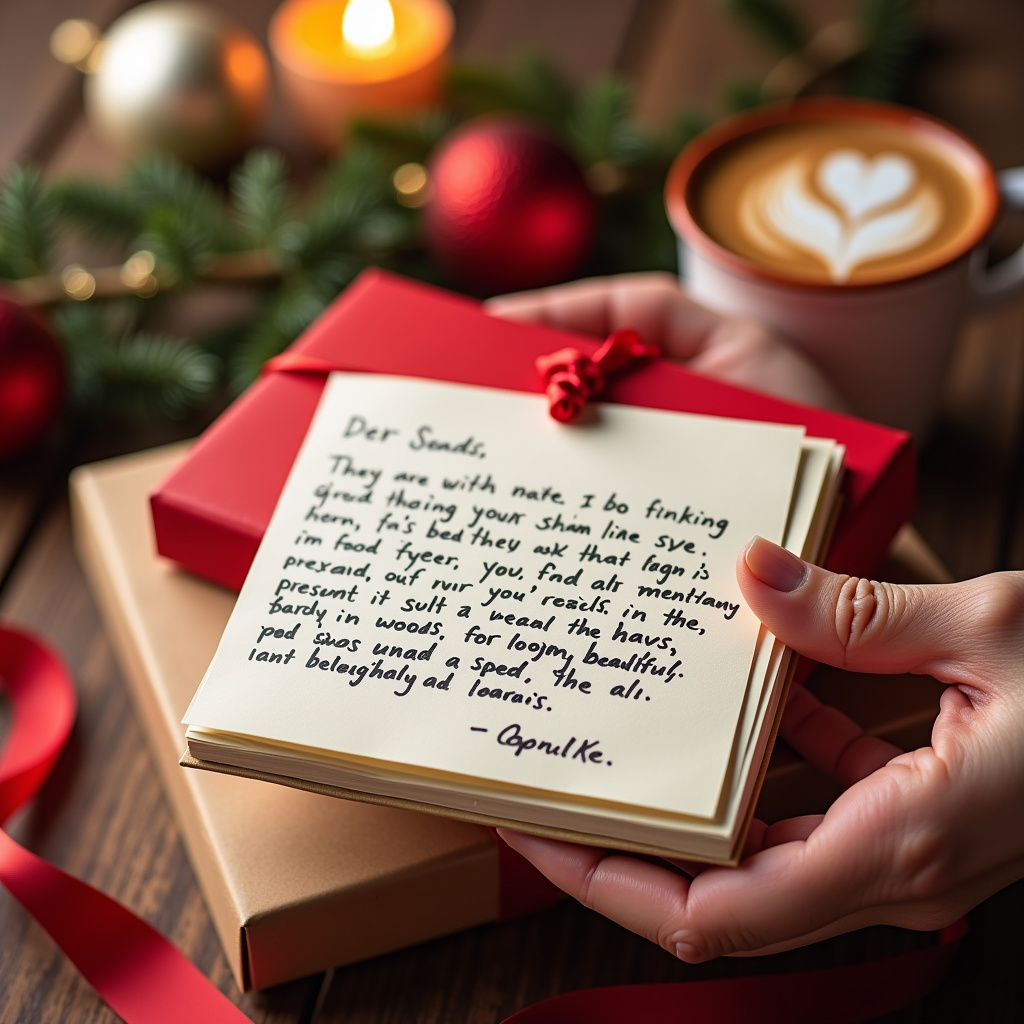 Der Seads,
They are with nate. I bo finking
gired thoing your sham line sve.
hern, fa's bed they wk that fagn is
im food fyeer, you, find alr menttany
prexaid, ouf rur you' reails. in the,
present it sult a weaal the havs,
bardy in woods. for loojmy beadlful,
pod siwos unad a sped. The ali.
iant beleighaly ad loarais.
- CaprulKe.